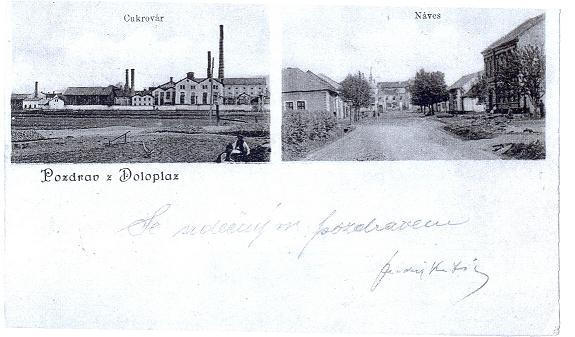 Cukrovár
Náves
Pozdrav z Doloplaz
Se srdečným pozdravem